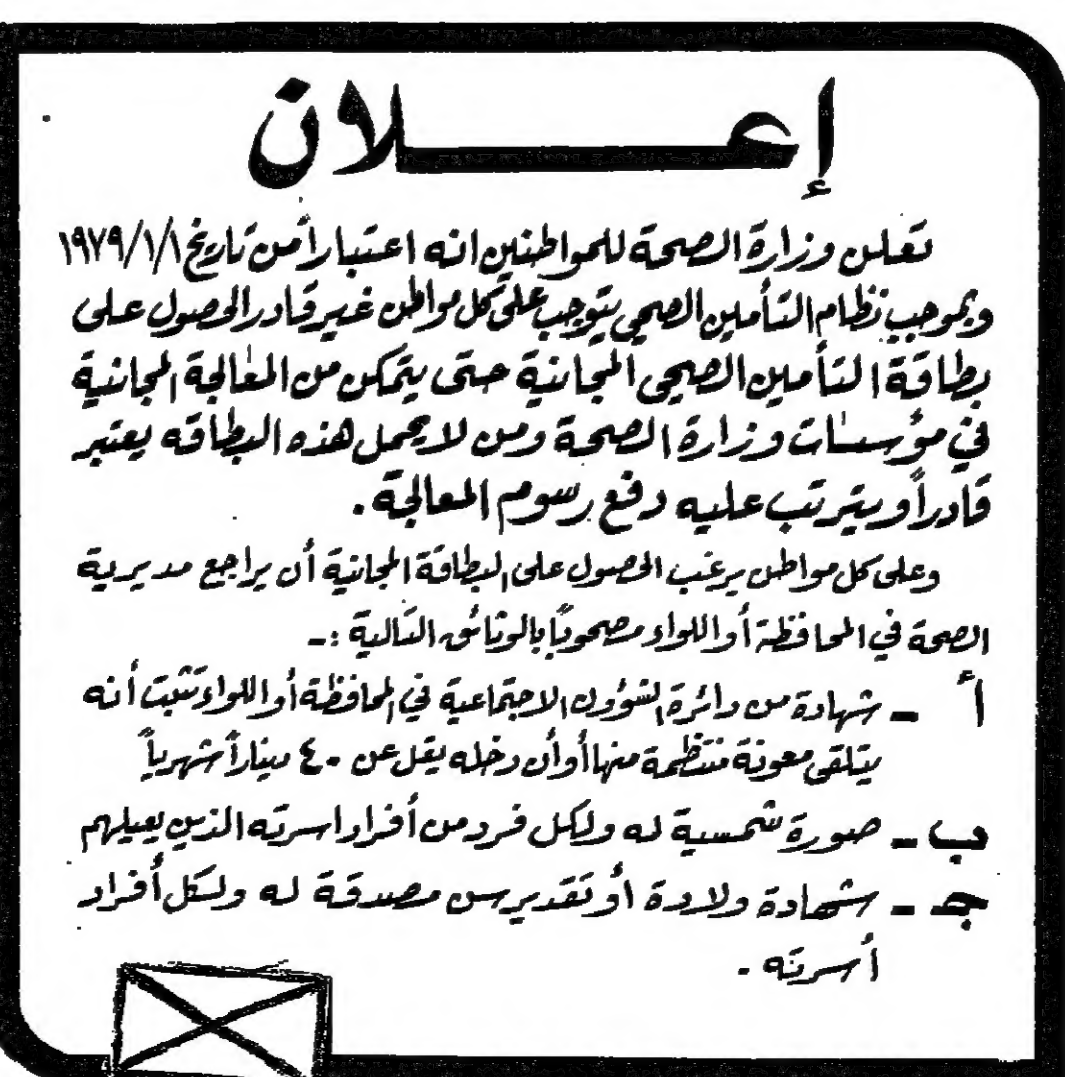 إعلان
تعلن وزارة الصحة للمواطنين انه اعتباراً من تاريخ ١/١/١٩٧٩
وبموجب نظام التأمين الصحي يتوجب على كل مواطن غير قادر الحصول على
بطاقة التأمين الصحي المجانية حتى يتمكن من المعالجة المجانية
في مؤسسات وزارة الصحة ومن لا يحمل هذه البطاقه يعتبر
قادراً ويترتب عليه دفع رسوم المعالجة .
وعلى كل مواطن يرغب الحصول على البطاقة المجانية أن يراجع مديرية
الصحة في المحافظة أو اللواء مصحوباً بالوثائق التالية :-
أ - شهادة من دائرة الشؤون الاجتماعية في المحافظة أو اللواء تثبت أنه
يتلقى معونة منتظمة منها أو أن دخله يقل عن ٤٠ ديناراً شهرياً
ب - صورة شمسية له ولكل فرد من أفراد اسرته الذين يعيلهم
جـ - شهادة ولادة أو تقدير سن مصدقة له ولكل أفراد
أسرته .